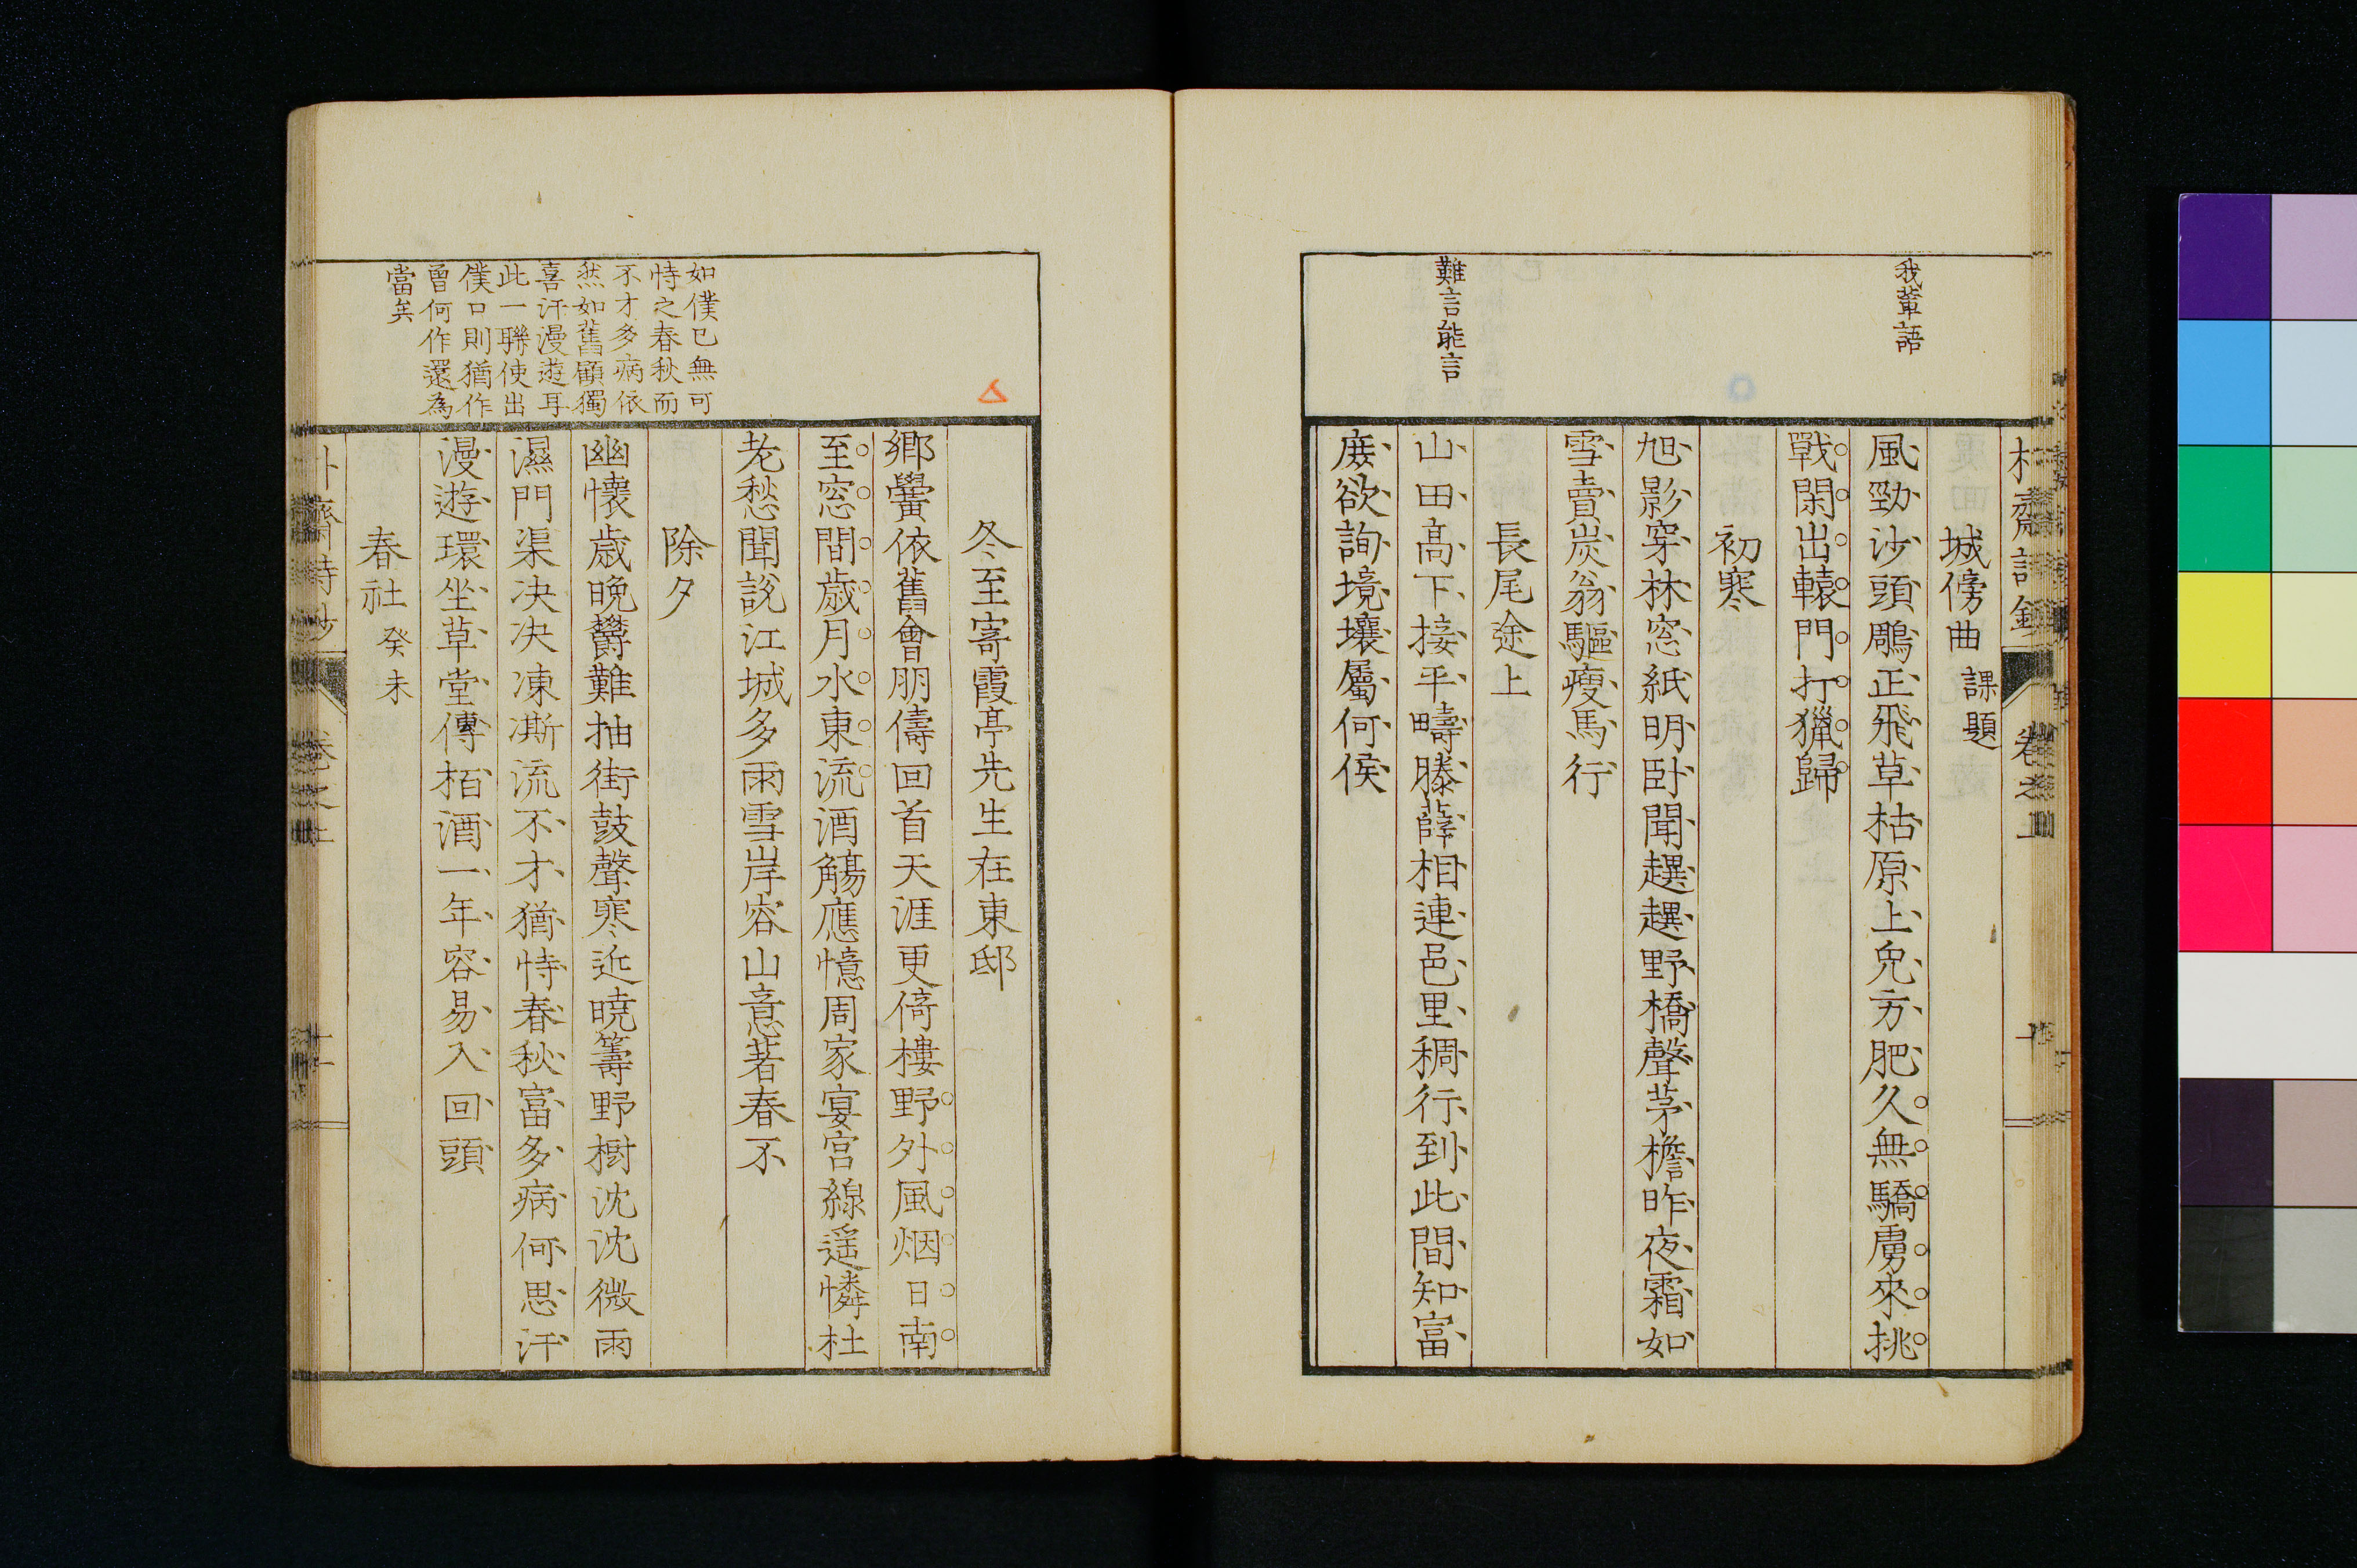 我輩語
難言能言
城傍曲 課題
風勁沙頭鵰正飛草枯原上兔方肥久無驕虜來挑
戰閑出轅門打獵歸
初寒
旭影穿林窓紙明臥聞趯趯野橋聲茅檐昨夜霜如
雪賣炭翁驅瘦馬行
長尾途上
山田高下接平疇滕薛相連邑里稠行到此間知富
庶欲詢境壤屬何侯
如僕已無可
恃之春秋而
不才多病依
然如舊顧獨
喜汗漫遊耳
此一聯使出
僕口則猶作
曾何作還為
當矣
冬至寄霞亭先生在東邸
鄉黌依舊會朋儔回首天涯更倚樓野外風烟日南
至窓間歲月水東流酒觴應憶周家宴宮線遥憐杜
老愁聞說江城多雨雪岸容山意著春不
除夕
幽懷歲晚鬱難抽街鼓聲寒近曉籌野樹沈沈微雨
濕門渠决决凍澌流不才猶恃春秋富多病何思汗
漫遊環坐草堂傳栢酒一年容易入回頭
春社 癸未